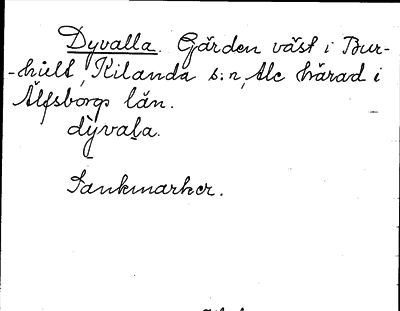 Dyvalla. Gården väst i Bur-
-hult, Kilanda s:n, Ale härad i
Älfsborgs län.
dyvala.
Sankmarker.